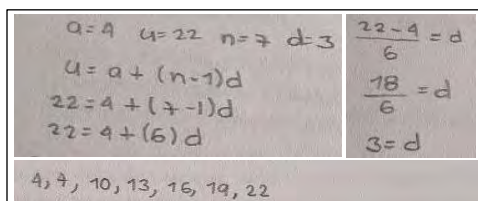 a=4 u=22 n=7 d=3
u=a+(n-1)d
22=4+(7-1)d
22=4+(6)d
22-4/6=d
18/6=d
3=d
4, 7, 10, 13, 16, 19, 22